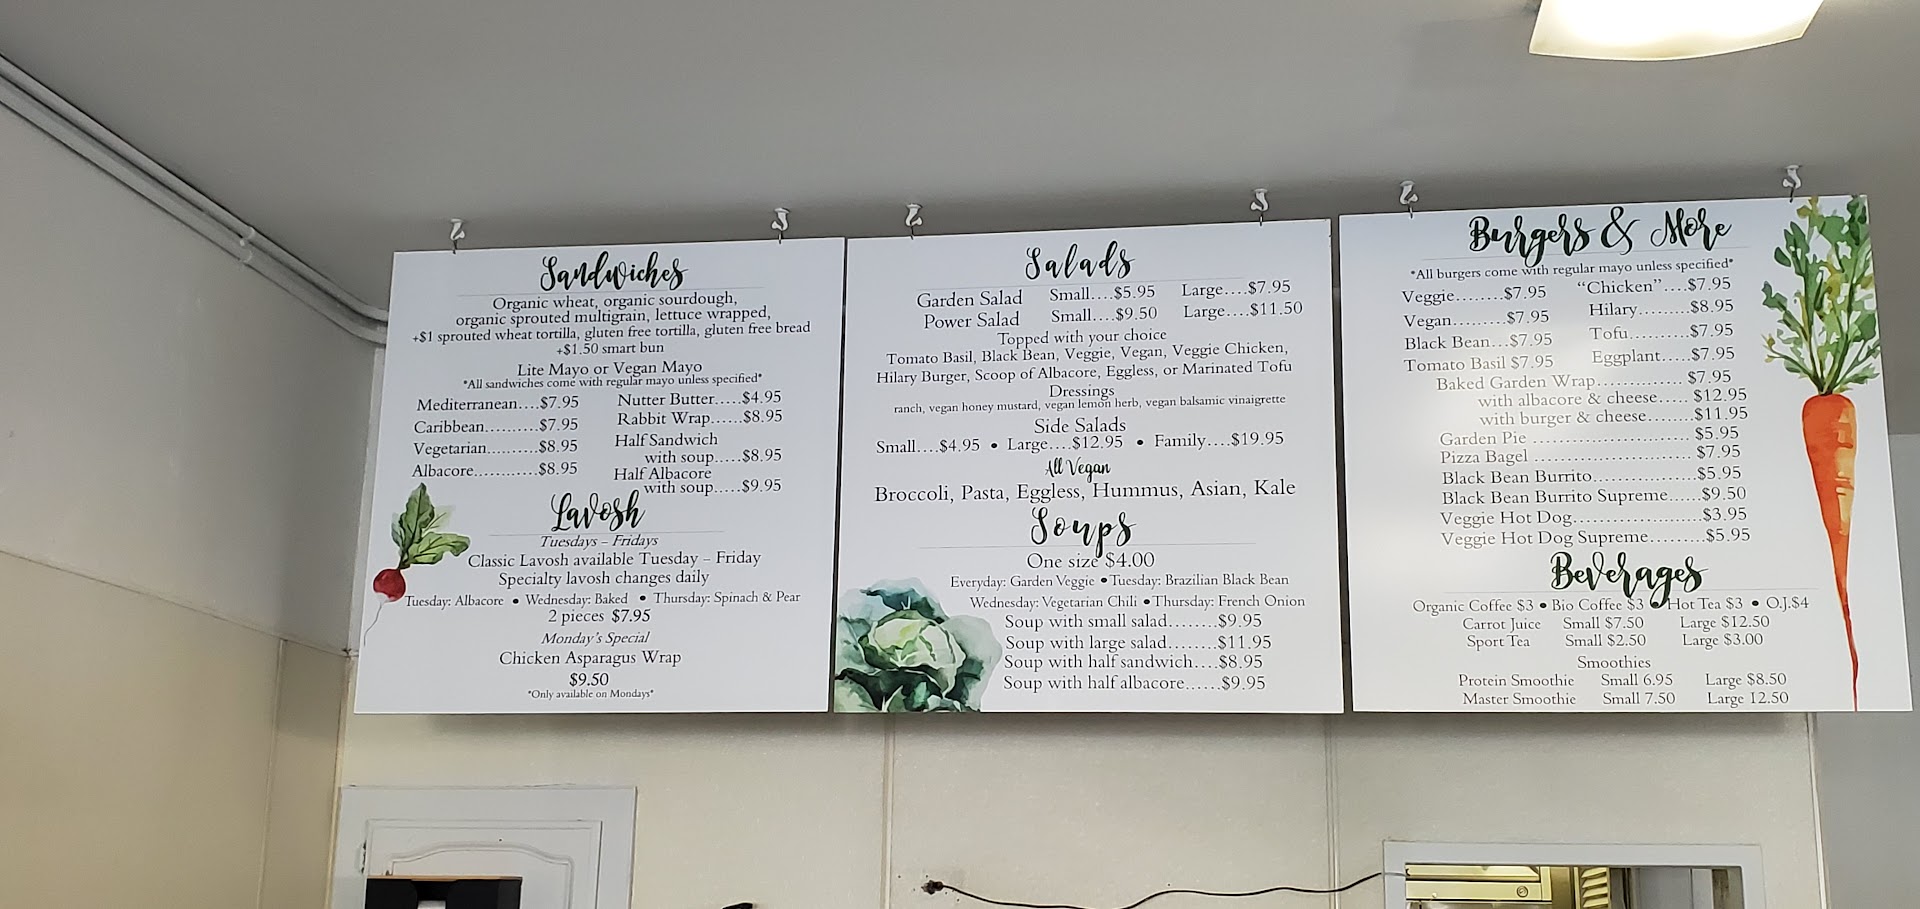 Sandwiches
Organic wheat, organic sourdough,
organic sprouted multigrain, lettuce wrapped,
+$1 sprouted wheat tortilla, gluten free tortilla, gluten free bread
+$1.50 smart bun
Lite Mayo or Vegan Mayo
*All sandwiches come with regular mayo unless specified*
Mediterranean....$7.95
Caribbean..........$7.95
Vegetarian..........$8.95
Albacore............$8.95
Nutter Butter.....$4.95
Rabbit Wrap......$8.95
Half Sandwich
with soup.....$8.95
Half Albacore
with soup.....$9.95
Lavosh
Tuesdays - Fridays
Classic Lavosh available Tuesday - Friday
Specialty lavosh changes daily
Tuesday: Albacore • Wednesday: Baked • Thursday: Spinach & Pear
2 pieces $7.95
Monday's Special
Chicken Asparagus Wrap
$9.50
*Only available on Mondays*
Salads
Garden Salad Small....$5.95 Large....$7.95
Power Salad Small....$9.50 Large....$11.50
Topped with your choice
Tomato Basil, Black Bean, Veggie, Vegan, Veggie Chicken,
Hilary Burger, Scoop of Albacore, Eggless, or Marinated Tofu
Dressings
ranch, vegan honey mustard, vegan lemon herb, vegan balsamic vinaigrette
Side Salads
Small....$4.95 • Large....$12.95 • Family....$19.95
All Vegan
Broccoli, Pasta, Eggless, Hummus, Asian, Kale
Soups
One size $4.00
Everyday: Garden Veggie • Tuesday: Brazilian Black Bean
Wednesday: Vegetarian Chili • Thursday: French Onion
Soup with small salad........$9.95
Soup with large salad........$11.95
Soup with half sandwich....$8.95
Soup with half albacore......$9.95
Burgers & More
*All burgers come with regular mayo unless specified*
Veggie........$7.95 "Chicken"....$7.95
Vegan.........$7.95 Hilary.........$8.95
Black Bean...$7.95 Tofu...........$7.95
Tomato Basil $7.95 Eggplant.....$7.95
Baked Garden Wrap.............. $7.95
with albacore & cheese..... $12.95
with burger & cheese........$11.95
Garden Pie .......................... $5.95
Pizza Bagel .......................... $7.95
Black Bean Burrito.................$5.95
Black Bean Burrito Supreme......$9.50
Veggie Hot Dog.....................$3.95
Veggie Hot Dog Supreme.........$5.95
Beverages
Organic Coffee $3 • Bio Coffee $3 • Hot Tea $3 • O.J.$4
Carrot Juice Small $7.50 Large $12.50
Sport Tea Small $2.50 Large $3.00
Smoothies
Protein Smoothie Small 6.95 Large $8.50
Master Smoothie Small 7.50 Large 12.50